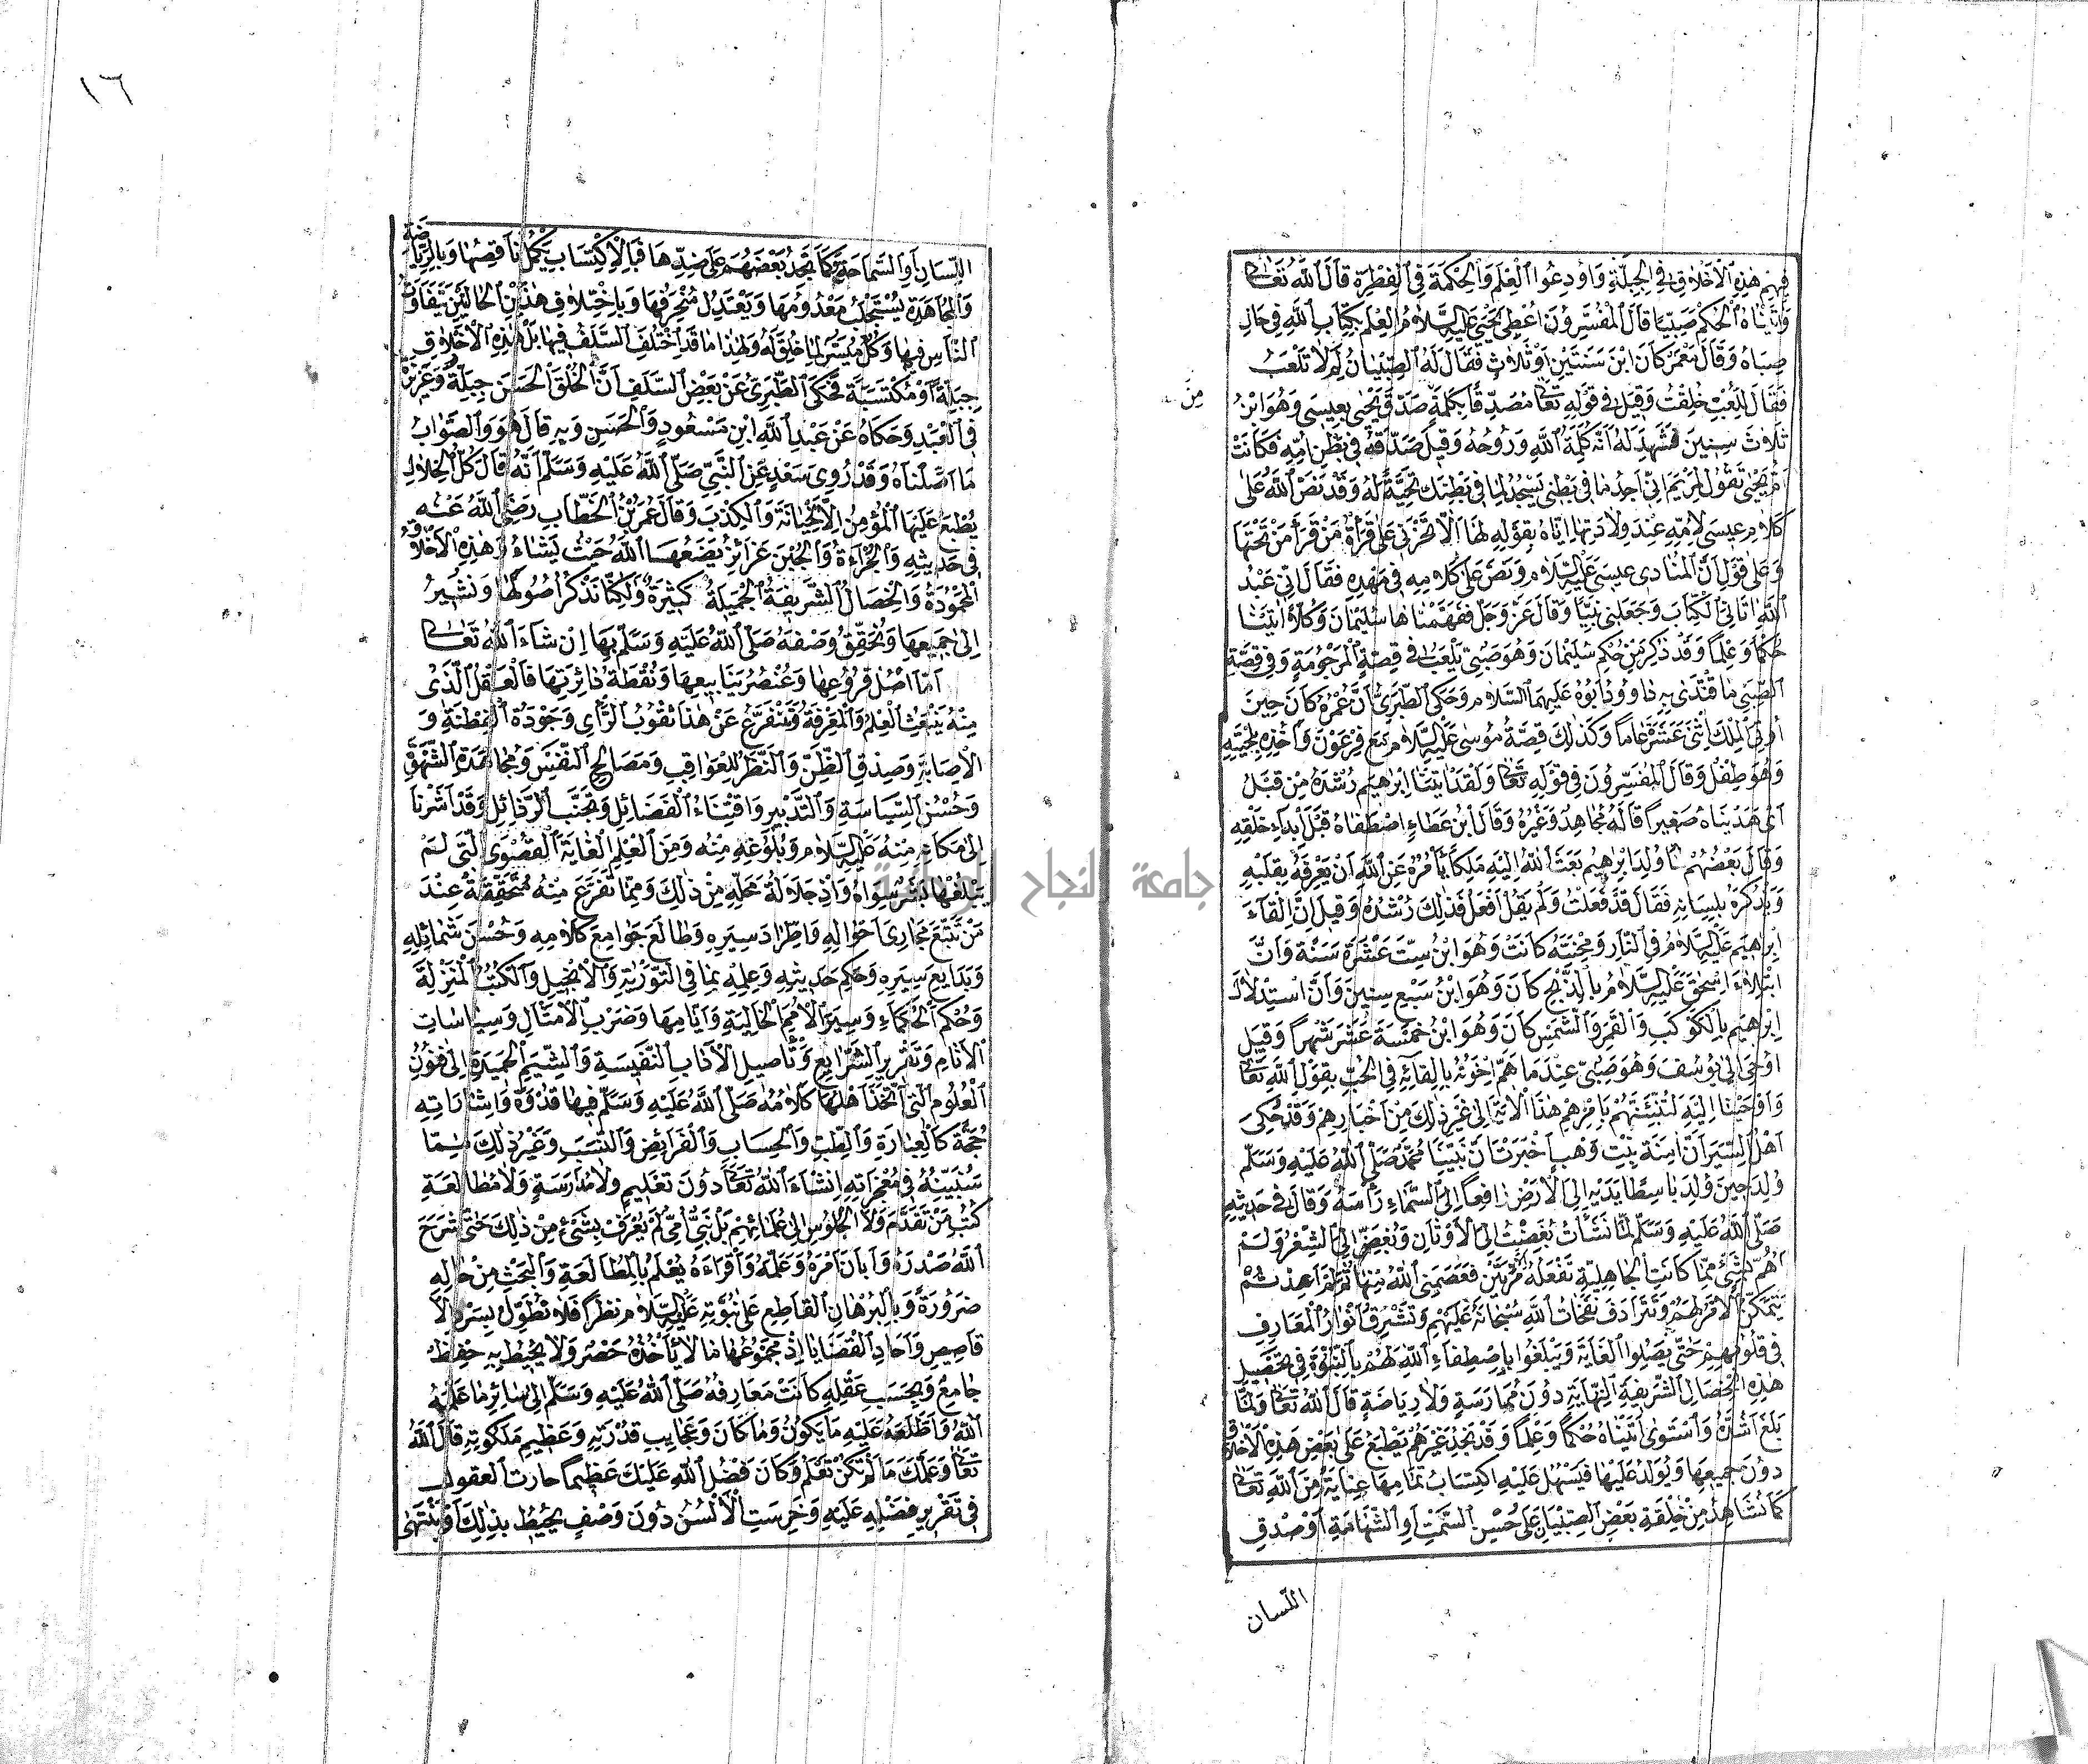 فيهم هذه الأخلاق في الجبلة وأودعوا العلم والحكمة في الفطرة قال الله تعالى
وآتيناه الحكم صبيا قال المفسرون أعطى يحيى عليه السلام العلم بكتاب الله في حال
صباه وقال معمر كان ابن سنتين أو ثلاث فقال له الصبيان لم لا تلعب
فقال أللعب خلقت وقيل في قوله تعالى مصدقا بكلمة صدق يحيى بعيسى وهو ابن
من
ثلاث سنين فشهد له أنه كلمة الله وروحه وقيل صدقه في بطن أمه فكانت
أم يحيى تقول لمريم إني أجد ما في بطني يسجد لما في بطنك تحية له وقد نص الله على
كلام عيسى لأمه عند ولادتها إياه بقوله لها ألا تحزني على قراءة من قرأ من تحتها
وعلى قول أن المنادي عيسى عليه السلام ونص على كلامه في مهده فقال إني عبد
الله آتاني الكتاب وجعلني نبيا وقال عز وجل ففهمناها سليمان وكلا آتينا
حكما وعلما وقد ذكر من حكم سليمان وهو صبي يلعب في قصة المرجومة وفي قصة
الصبي ما اقتدى به داوود أبوه عليهما السلام وحكى الطبري أن عمره كان حين
أوتي الملك اثني عشر عاما وكذلك قصة موسى عليه السلام مع فرعون وأخذه بلحيته
وهو طفل وقال المفسرون في قوله تعالى ولقد آتينا إبراهيم رشده من قبل
أي هديناه صغيرا قاله مجاهد وغيره وقال ابن عطاء اصطفاه قبل إبداء خلقه
وقال بعضهم لما ولد إبراهيم بعث الله إليه ملكا يأمره عن الله أن يعرفه بقلبه
ويذكره بلسانه فقال قد فعلت ولم يقل أفعل فذلك رشده وقيل إن إلقاء
إبراهيم عليه السلام في النار ومحنته كانت وهو ابن ست عشرة سنة وأن
ابتلاء إسحق عليه السلام بالذبح كان وهو ابن سبع سنين وأن استدلال
إبراهيم بالكوكب والقمر والشمس كان وهو ابن خمسة عشر شهرا وقيل
أوحي إلى يوسف وهو صبي عندما هم إخوته بإلقائه في الجب بقول الله تعالى
وأوحينا إليه لتنبئنهم بأمرهم هذا الآية إلى غير ذلك من أخبارهم وقد حكى
أهل السير أن آمنة بنت وهب أخبرت أن نبينا محمد صلى الله عليه وسلم
ولد حين ولد باسطا يديه إلى الأرض رافعا إلى السماء رأسه وقال في حديثه
صلى الله عليه وسلم لما نشأت بغضت إلي الأوثان وبغض إلي الشعر ولم
أهم بشيء مما كانت الجاهلية تفعله إلا مرتين فعصمني الله منها ثم لم أعد ثم
يتمكن الأمر لهم وتترادف نفحات الله سبحانه عليهم وتشرق أنوار المعارف
في قلوبهم حتى يصلوا الغاية ويبلغوا بإصطفاء الله لهم بالنبوة في تحصيل
هذه الخصال الشريفة النهاية دون ممارسة ولا رياضة قال الله تعالى ولما
بلغ أشده واستوى آتيناه حكما وعلما وقد نجد غيرهم يطبع على بعض هذه الأخلاق
دون جميعها ويولد عليها فيسهل عليه اكتساب تمامها عناية من الله تعالى
كما نشاهد من خلقة بعض الصبيان على حسن السمت أو الشهامة أو صدق
اللسان
١٦
اللسان أو السماحة وكما نجد بعضهم على ضدها فبالاكتساب يكمل ناقصها وبالرياضة
والمجاهدة يستجلب معدومها ويعتدل منحرفها وباختلاف هذين الحالين يتفاوت
الناس فيها وكل ميسر لما خلق له ولهذا ما قد اختلف السلف فيها بل هذه الأخلاق
جبلة أو مكتسبة فحكى الطبري عن بعض السلف أن الخلق الحسن جبلة وغريزة
في العبد وحكاه عن عبد الله ابن مسعود والحسن وبه قال هو والصواب
ما أصلناه وقد روى سعد عن النبي صلى الله عليه وسلم أنه قال كل الخلال
يطبع عليها المؤمن إلا الخيانة والكذب وقال عمر بن الخطاب رضي الله عنه
في حديثه والجرأة والجبن غرائز يضعها الله حيث يشاء وهذه الأخلاق
المحمودة والخصال الشريفة الجميلة كثيرة ولكنا نذكر أصولها ونشير
إلى جميعها ونحقق وصفه صلى الله عليه وسلم بها إن شاء الله تعالى
أما أصل فروعها وعنصر ينابيعها ونقطة دائرتها فالعقل الذي
منه ينبعث العلم والمعرفة ويتفرع عن هذا ثقوب الرأي وجودة الفطنة و
الإصابة وصدق الظن والنظر للعواقب ومصالح النفس ومجاهدة الشهوة
وحسن السياسة والتدبير واقتناء الفضائل وتجنب الرذائل وقد أشرنا
إلى مكانه منه عليه السلام وبلوغه منه ومن العلم الغاية القصوى التي لم
يبلغها بشر سواه وإذ جلالة محله من ذلك ومما تفرع منه متحققة عند
من تتبع مجاري أحواله واطراد سيره وطالع جوامع كلامه وحسن شمائله
وبدايع سيره وحكم حديثه وعلمه بما في التورية والإنجيل والكتب المنزلة
وحكم الحكماء وسير الأمم الخالية وأيامها وضرب الأمثال وسياسات
الأنام وتقرير الشرايع وتأصيل الآداب النفيسة والشيم الحميدة إلى فنون
العلوم التي اتخذ أهلها كلامه صلى الله عليه وسلم فيها قدوة وإشاراته
حجة كالعبارة والطب والحساب والفرايض والنسب وغير ذلك مما
سنبينه في معجزاته إنشاء الله تعالى دون تعليم ولا مدارسة ولا مطالعة
كتب من تقدم ولا الجلوس إلى علمائهم بل نبي أمي لم يعرف بشيء من ذلك حتى شرح
الله صدره وأبان أمره وعلمه وأقرأه يعلم بالمطالعة والبحث من حاله
ضرورة وبالبرهان القاطع على نبوته عليه السلام نظرا فلا نطول بسرد الأ
قاصيص وآحاد القضايا إذ مجموعها ما لا يأخذه حصر ولا يحيط به حفظ
جامع وبحسب عقله كانت معارفه صلى الله عليه وسلم إلى سائر ما علمه
الله وأطلعه عليه ما يكون وما كان وعجايب قدرته وعظيم ملكوته قال الله
تعالى وعلمك ما لم تكن تعلم وكان فضل الله عليك عظيما حارت العقول
في تقرير فضله عليه وخرست الألسن دون وصف يحيط بذلك أو ينتهى
جامعة النجاح الوطنية